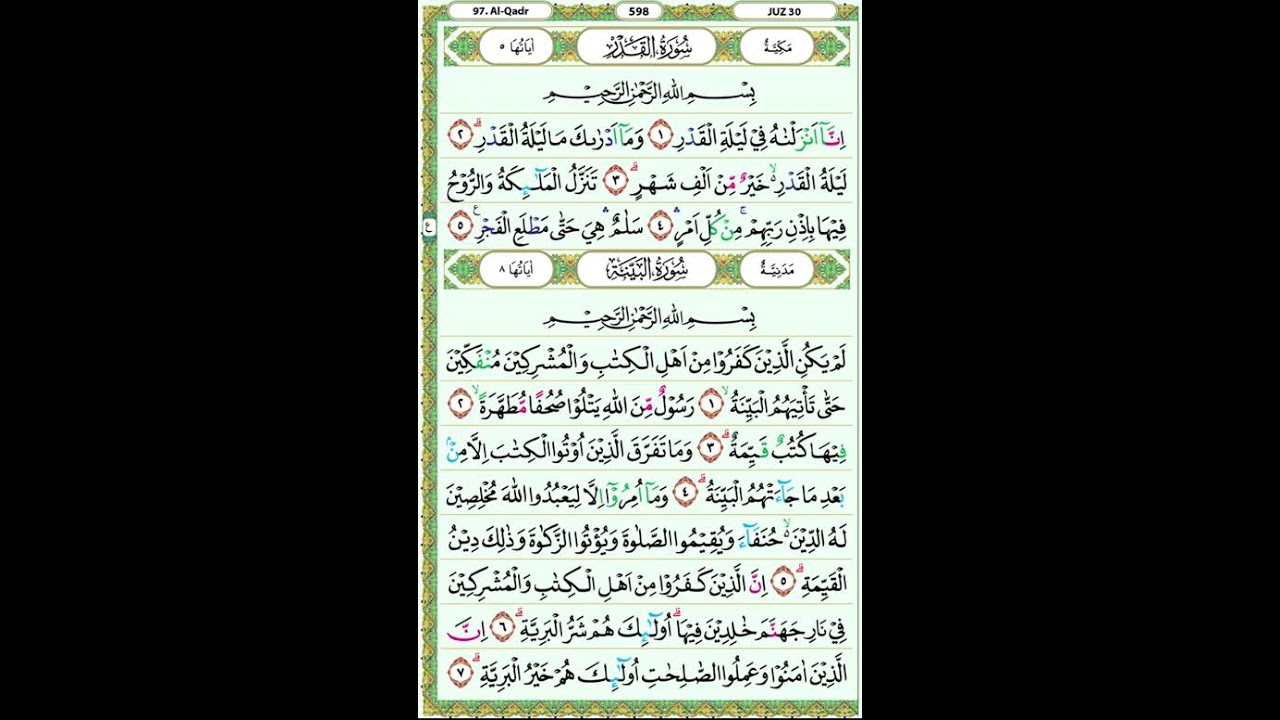 97. Al-Qadr
598
JUZ 30
مَكِّيَّةٌ
سُوْرَةُ الْقَدْرِ
اٰيَاتُهَا ٥
بِسْمِ اللّٰهِ الرَّحْمٰنِ الرَّحِيْمِ
اِنَّآ اَنْزَلْنٰهُ فِيْ لَيْلَةِ الْقَدْرِ ١ وَمَآ اَدْرٰىكَ مَا لَيْلَةُ الْقَدْرِۗ ٢
لَيْلَةُ الْقَدْرِ ەۙ خَيْرٌ مِّنْ اَلْفِ شَهْرٍۗ ٣ تَنَزَّلُ الْمَلٰۤىِٕكَةُ وَالرُّوْحُ
فِيْهَا بِاِذْنِ رَبِّهِمْۚ مِنْ كُلِّ اَمْرٍۛ ٤ سَلٰمٌۛ هِيَ حَتّٰى مَطْلَعِ الْفَجْرِ ࣖ ٥
ع
مَدَنِيَّةٌ
سُوْرَةُ الْبَيِّنَةِ
اٰيَاتُهَا ٨
بِسْمِ اللّٰهِ الرَّحْمٰنِ الرَّحِيْمِ
لَمْ يَكُنِ الَّذِيْنَ كَفَرُوْا مِنْ اَهْلِ الْكِتٰبِ وَالْمُشْرِكِيْنَ مُنْفَكِّيْنَ
حَتّٰى تَأْتِيَهُمُ الْبَيِّنَةُۙ ١ رَسُوْلٌ مِّنَ اللّٰهِ يَتْلُوْا صُحُفًا مُّطَهَّرَةًۙ ٢
فِيْهَا كُتُبٌ قَيِّمَةٌۗ ٣ وَمَا تَفَرَّقَ الَّذِيْنَ اُوْتُوا الْكِتٰبَ اِلَّا مِنْۢ
بَعْدِ مَا جَاۤءَتْهُمُ الْبَيِّنَةُۗ ٤ وَمَآ اُمِرُوْٓا اِلَّا لِيَعْبُدُوا اللّٰهَ مُخْلِصِيْنَ
لَهُ الدِّيْنَ ەۙ حُنَفَاۤءَ وَيُقِيْمُوا الصَّلٰوةَ وَيُؤْتُوا الزَّكٰوةَ وَذٰلِكَ دِيْنُ
الْقَيِّمَةِۗ ٥ اِنَّ الَّذِيْنَ كَفَرُوْا مِنْ اَهْلِ الْكِتٰبِ وَالْمُشْرِكِيْنَ
فِيْ نَارِ جَهَنَّمَ خٰلِدِيْنَ فِيْهَاۗ اُولٰۤىِٕكَ هُمْ شَرُّ الْبَرِيَّةِۗ ٦ اِنَّ
الَّذِيْنَ اٰمَنُوْا وَعَمِلُوا الصّٰلِحٰتِ اُولٰۤىِٕكَ هُمْ خَيْرُ الْبَرِيَّةِۗ ٧